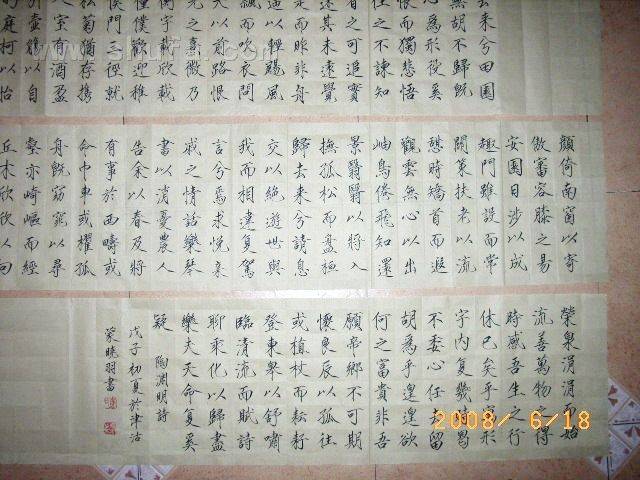 去來兮田園
蕪胡不歸既
為形役奚
悵而獨悲悟
往之不諫知
者之可追實
其未遠覺
是而昨非舟
遙以輕颺風
飄而吹衣問
夫以前路恨
光之熹微乃
衡宇載欣載
僮僕歡迎稚
候門三徑就
松菊猶存攜
室有酒盈
壺觴以自
庭柯以怡
顏倚南窗以寄
傲審容膝之易
安園日涉以成
趣門雖設而常
關策扶老以流
憩時矯首而遐
觀雲無心以出
岫鳥倦飛知還
景翳翳以將入
撫孤松而盤桓
歸去來兮請息
交以絕遊世與
我而相違復駕
言兮焉求悅親
戚之情話樂琴
書以消憂農人
告余以春及將
有事於西疇或
命巾車或櫂孤
舟既窈窕以尋
壑亦崎嶇而經
丘木欣欣以向
榮泉涓涓而始
流善萬物得
時感吾生之行
休已矣乎寓形
宇內復幾時曷
不委心任去留
胡為乎遑遑欲
何之富貴非吾
願帝鄉不可期
懷良辰以孤往
或植杖而耘耔
登東皋以舒嘯
臨清流而賦詩
聊乘化以歸盡
樂夫天命复奚
疑 陶淵明詩
戊子初夏於津沽
曉羽書
2008/6/18